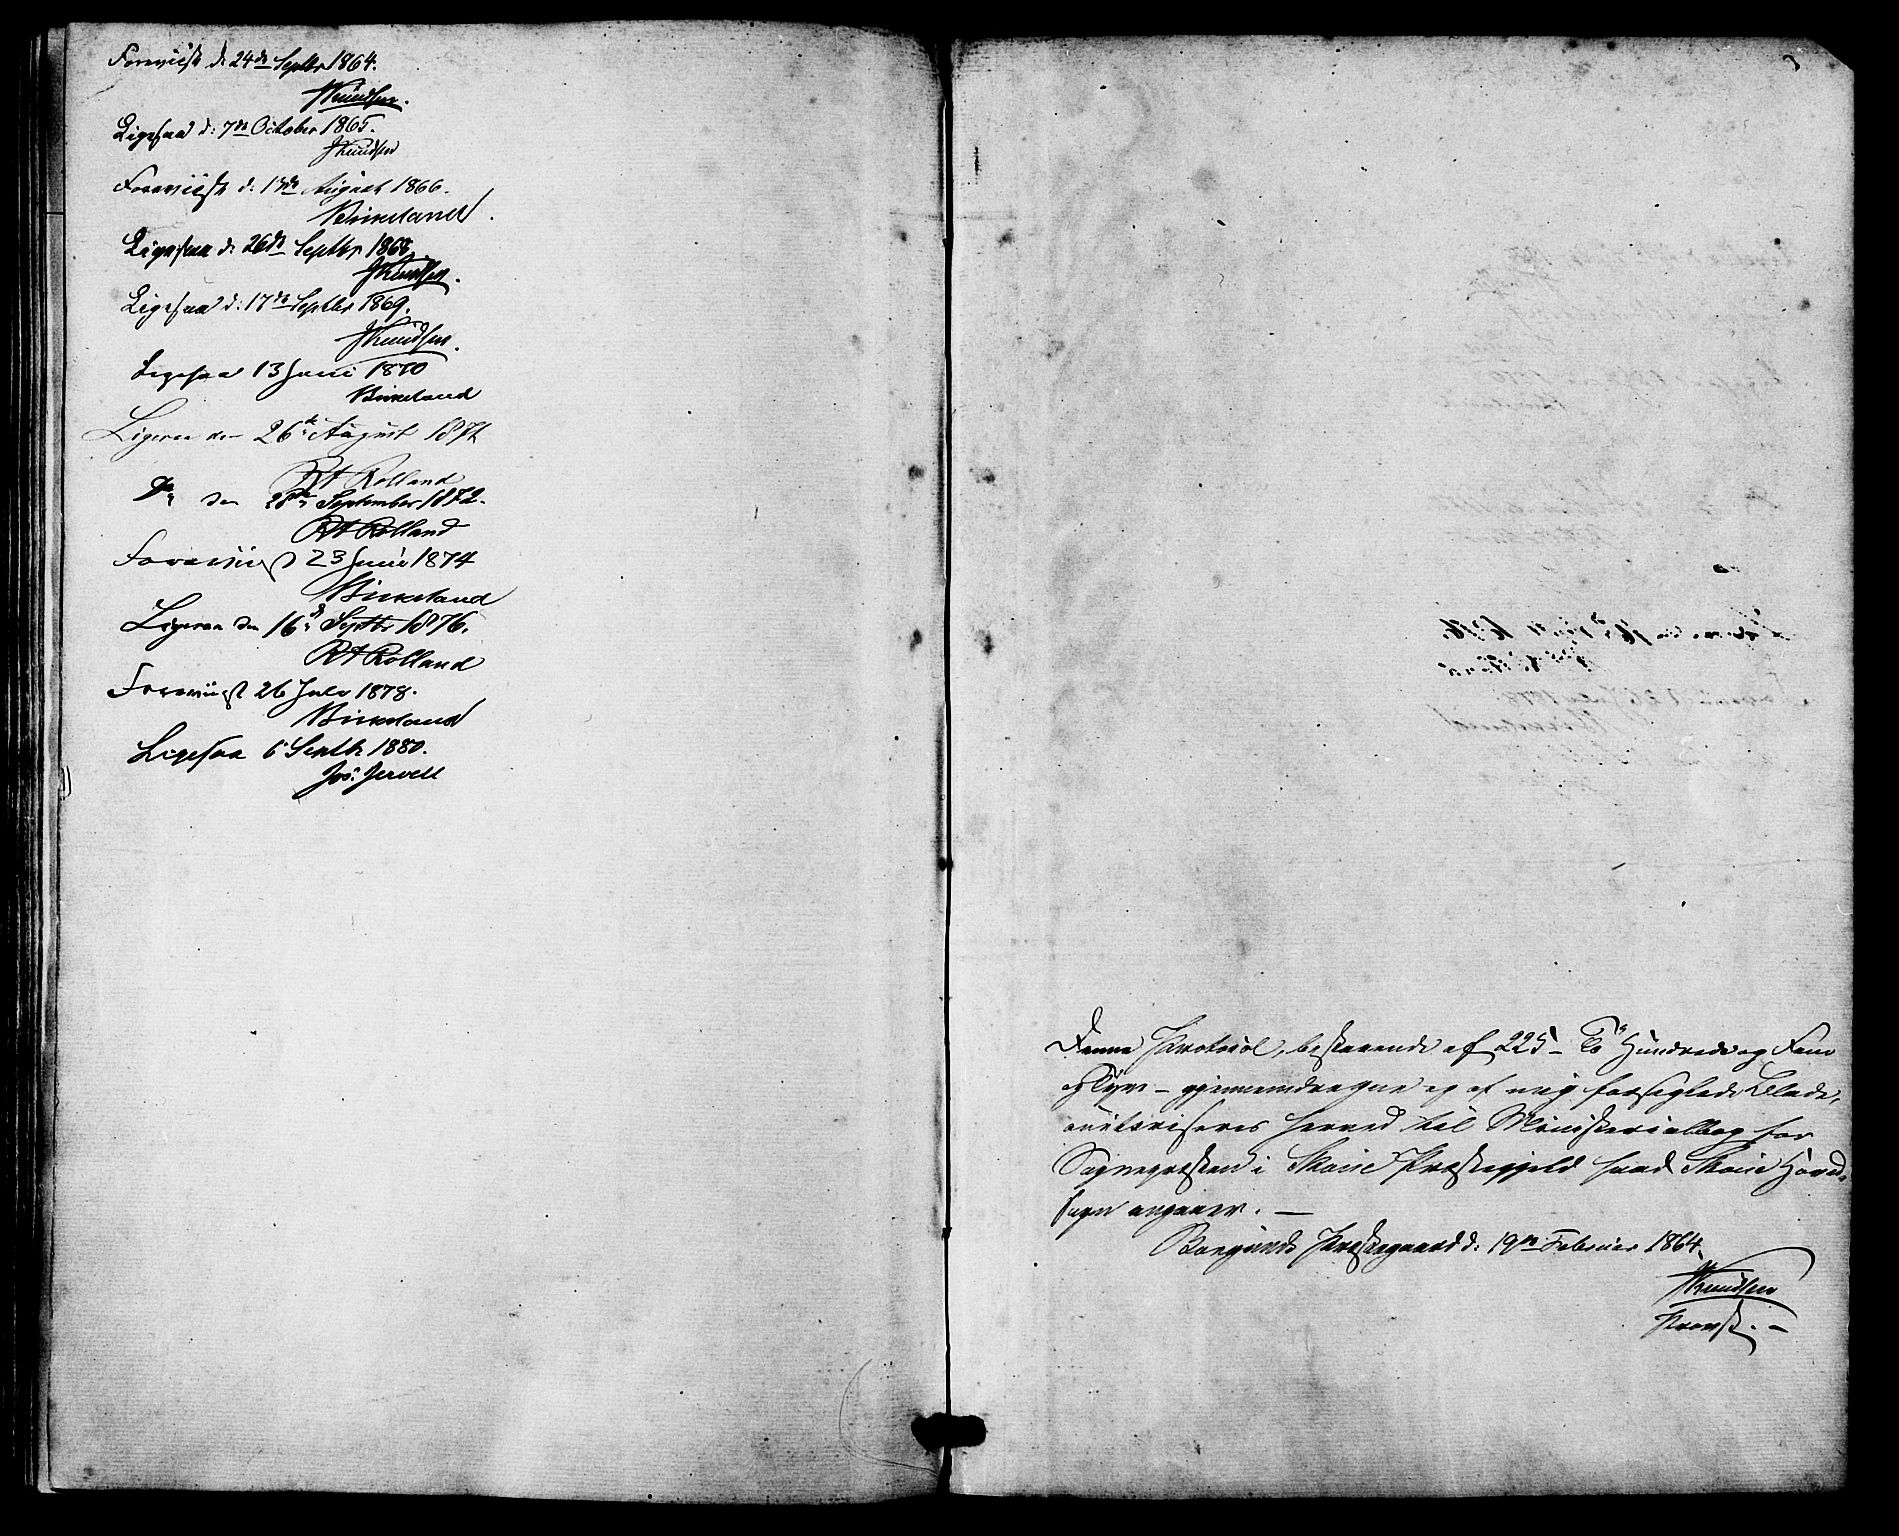 Foreviist d. 24de Septbr 1864.
JKnudsen.
Ligesaa d: 7de October 1865.
JKnudsen
Foreviist d: 13de August 1866.
Birkeland.
Ligesaa d. 26de Septbr 1868.
JKnudsen.
Ligesaa d: 17de Septbr 1869.
JKnudsen.
Ligesaa 13 Juni 1870
Birkeland
Ligesaa den 26de August 1871
RA Rolland
Do den 28de September 1872.
RA Rolland
Foreviist 23 Juni 1874
Birkeland
Ligesaa den 16de Septbr 1876.
RA Rolland
Foreviist 26 Juli 1878.
Birkeland
Ligesaa 6 Septb 1880.
Jos. Jervell
Denne Protocol, bestaaende af 225 – To Hundrede og Fem
og Tyve – gjennemdragne og af mig forseglede Blade,
autoriseres herved til Ministerialbog for
Sognepræsten i Skoue Præstegjeld hvad Skoue Hoved-
sogn angaaer. —
Borgunds Præstegaard d: 19de Februar 1864.
JKnudsen
Provst. –